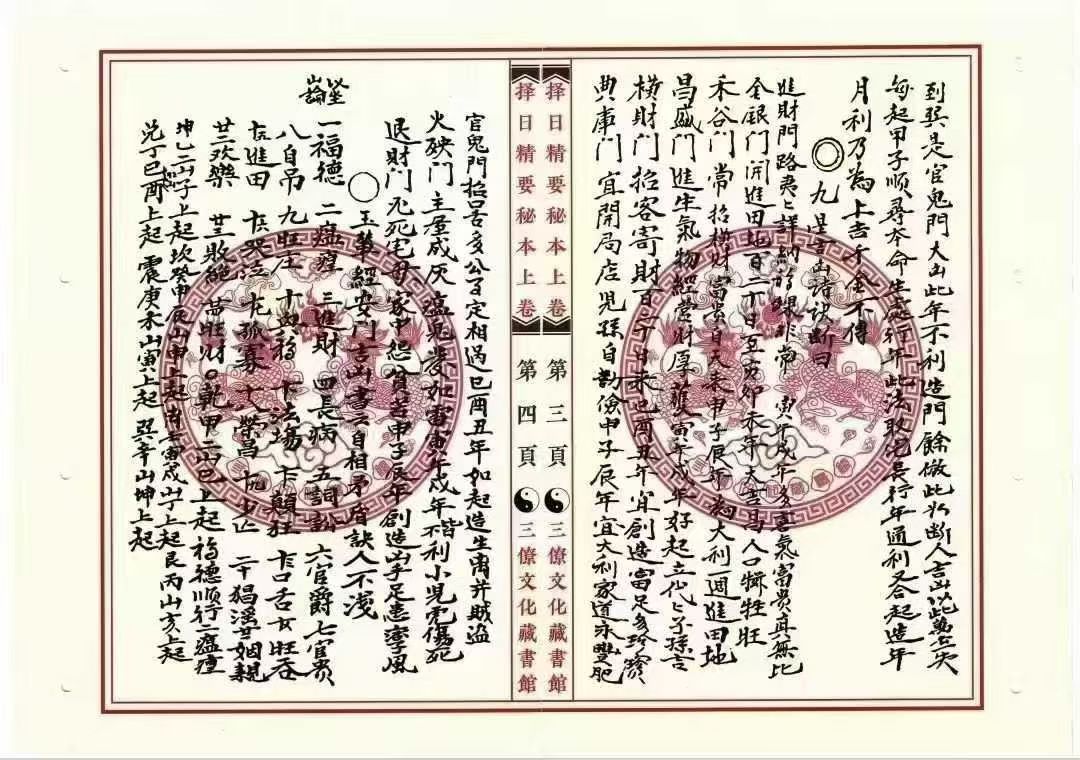 到巽是官鬼門大凶此年不利造門餘倣此斷人吉凶萬無失
每起甲子順尋本命生處行年此法取宅長行年通利各起造年
月利乃為上吉千金不傳
◎九星吉凶詩訣斷曰
進財門路喪詳納福祿非常寅午戌年多喜氣富貴真無比
金銀門開進田地百二十日互亥卯未年大吉昌人口犧牲旺
禾谷門常招橫財富貴自天來申子辰年為大利週進田地
昌盛門進生氣物經營財厚寅午戌年好起立代代子孫吉
橫財門招客寄財百二十日來巳酉丑年宜創造富足多珍寶
典庫門宜開局店兒孫自勤儉申子辰年宜大利家道永豐肥
择日精要秘本上卷 第三頁 三僚文化藏書館
择日精要秘本上卷 第四頁 三僚文化藏書館
官鬼門招口舌亥公百定相遇巳酉丑年如起造生离并賊盜
火殃門主屋成灰瘟鬼發如雷寅午戌年不利小兒虎傷死
退財門死宅母家中怨貧苦申子辰年創造凶手足患瘋
○玉華經安門吉凶書云自相矛盾訣人不淺
坐山論
一福德 二瘟𤶊 三進財 四長病 五詞訟 六官爵 七官貴
八自吊 九旺庄 十血移 法場 顛狂 口舌 旺蚕
進田 哭泣 孤寡 榮昌 少亡 二十猖淫 姻親
歡樂 敗絕 旺財 〇乾甲二山巳上起福德順行二瘟𤶊
坤乙二山子上起坎癸申辰山申上起 寅戌山 上起艮丙山亥上起
兌丁巳酉上起 震庚未山寅上起 巽辛山坤上起